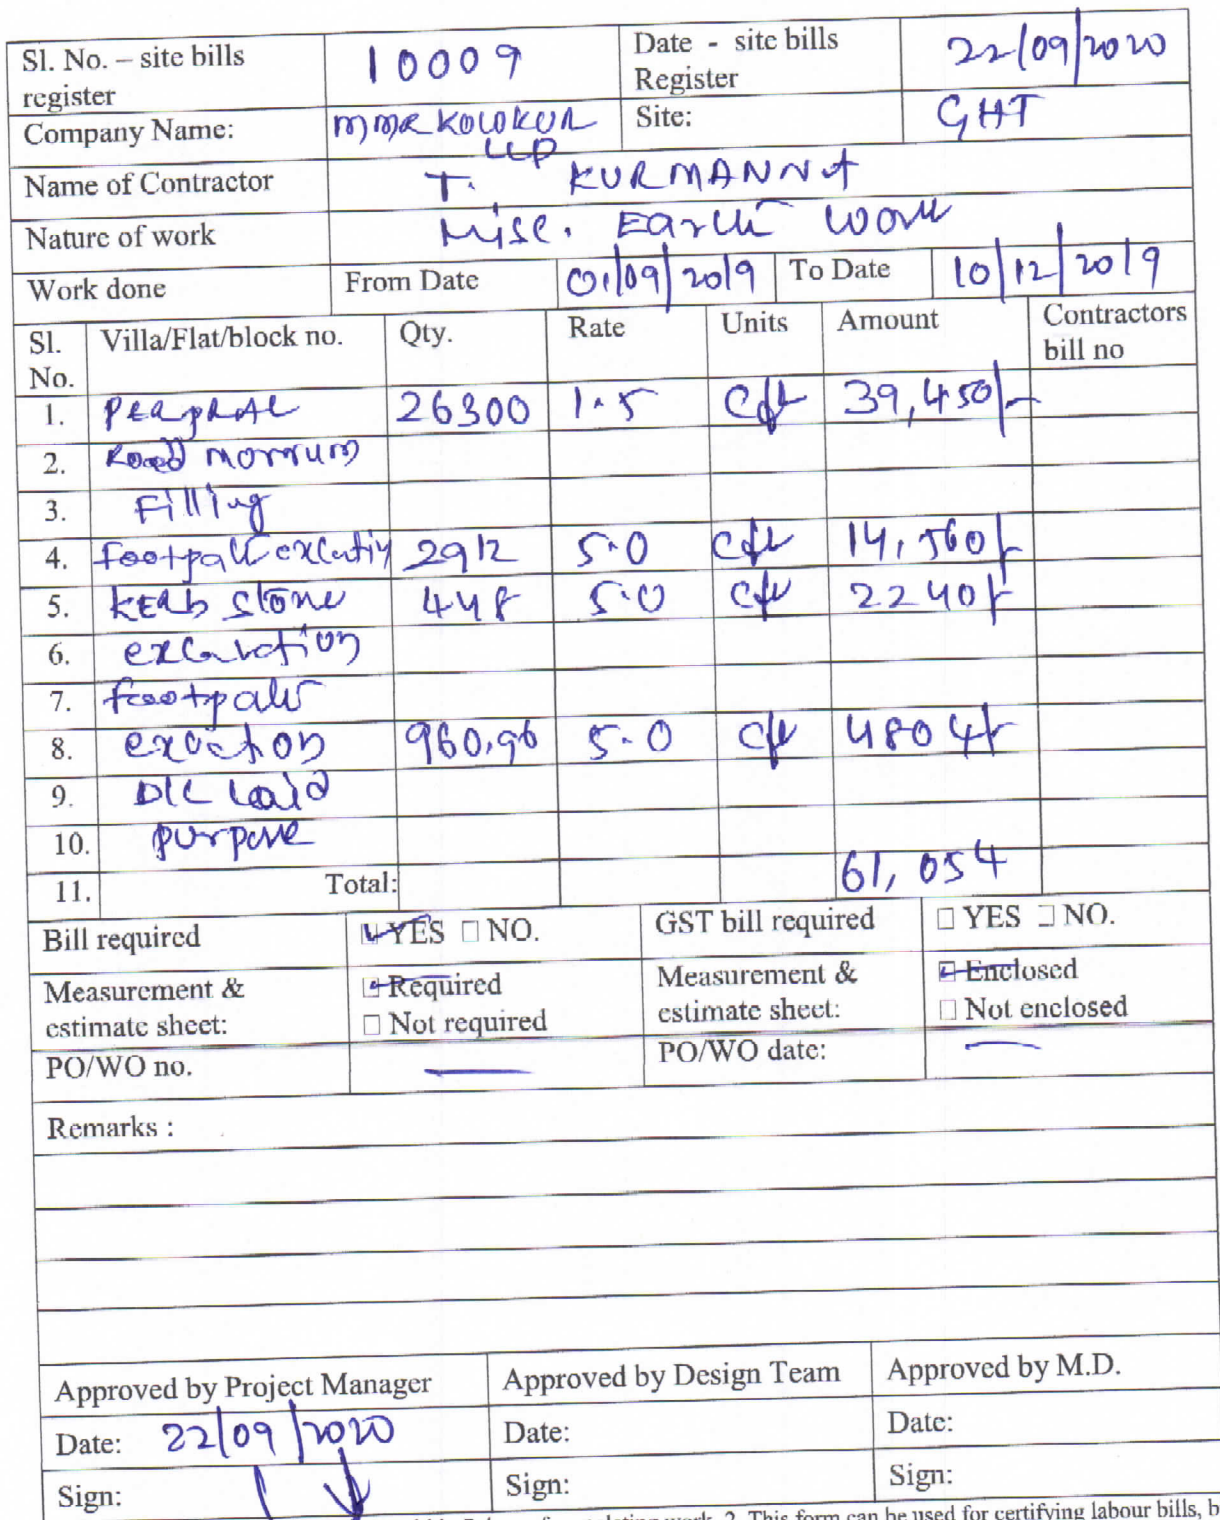 Sl. No. – site bills register 10009 Date - site bills Register 22/09/2020
Company Name: MMR KOLOKUR LLP Site: GHT
Name of Contractor T. KURMANNA
Nature of work Misc. Earth work
Work done From Date 01/09/2019 To Date 10/12/2019
Sl. No. Villa/Flat/block no. Qty. Rate Units Amount Contractors bill no
1. 26300 1.5 cft 39,450/-
2. Road morrum
3. Filling
4. 2912 5.0 cft 14,560/-
5. kerb stone 448 5.0 cft 2240/-
6.
7.
8. 960.96 5.0 cft 4804/-
9.
10. purpose
11. Total: 61,054
Bill required YES NO. GST bill required YES NO.
Measurement & estimate sheet: Required Measurement & estimate sheet: Enclosed
Not required Not enclosed
PO/WO no. — PO/WO date: —
Remarks :
Approved by Project Manager Approved by Design Team Approved by M.D.
Date: 22/09/2020 Date: Date:
Sign: Sign: Sign:
work. 2. This form can be used for certifying labour bills, b